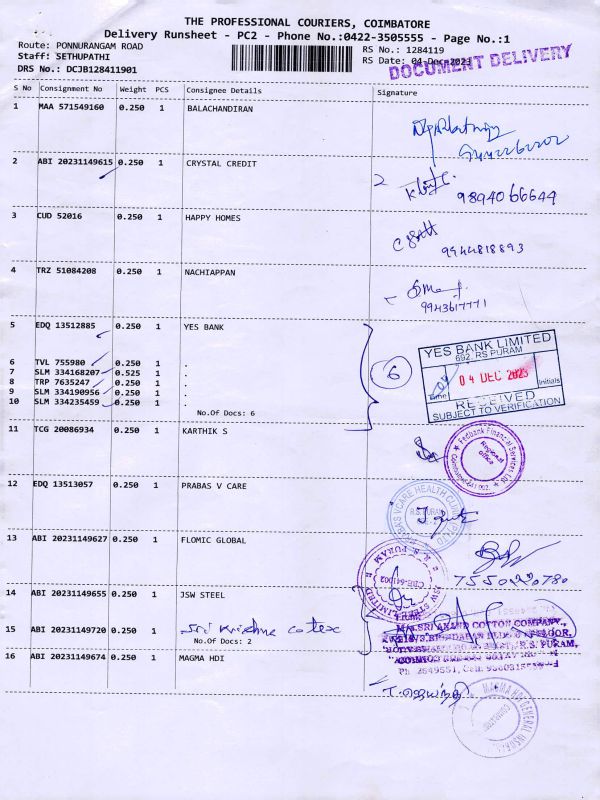 THE PROFESSIONAL COURIERS, COIMBATORE
Delivery Runsheet - PC2 - Phone No.:0422-3505555 - Page No.:1
Route: PONNURANGAM ROAD RS No.: 1284119
Staff: SETHUPATHI RS Date: 04-Dec-2023
DRS No.: DCJB128411901
DOCUMENT DELIVERY
S No Consignment No Weight PCS Consignee Details Signature
1 MAA 571549160 0.250 1 BALACHANDIRAN
2 ABI 20231149615 0.250 1 CRYSTAL CREDIT
9894066644
3 CUD 52016 0.250 1 HAPPY HOMES
9944818893
4 TRZ 51084208 0.250 1 NACHIAPPAN
9943617771
5 EDQ 13512885 0.250 1 YES BANK
6 TVL 755980 0.250 1 .
7 SLM 334168207 0.525 1 .
8 TRP 7635247 0.250 1 .
9 SLM 334190956 0.250 1 .
10 SLM 334235459 0.250 1 .
No.Of Docs: 6
6
YES BANK LIMITED
692, RS PURAM
04 DEC 2023
Time Initials
RECEIVED
SUBJECT TO VERIFICATION
11 TCG 20086934 0.250 1 KARTHIK S
Fedbank Financial Services Ltd
Regional office
12 EDQ 13513057 0.250 1 PRABAS V CARE
R.S. PURAM
13 ABI 20231149627 0.250 1 FLOMIC GLOBAL
7550220780
14 ABI 20231149655 0.250 1 JSW STEEL
JSW STEEL LIMITED
R. S. PURAM
CBE-641002
15 ABI 20231149720 0.250 1 Sri Krishna cotex
No.Of Docs: 2
M/s.SRI ANAND COTTON COMPANY,
R.S. PURAM,
16 ABI 20231149674 0.250 1 MAGMA HDI
MAGMA HDI GENERAL INSURANCE